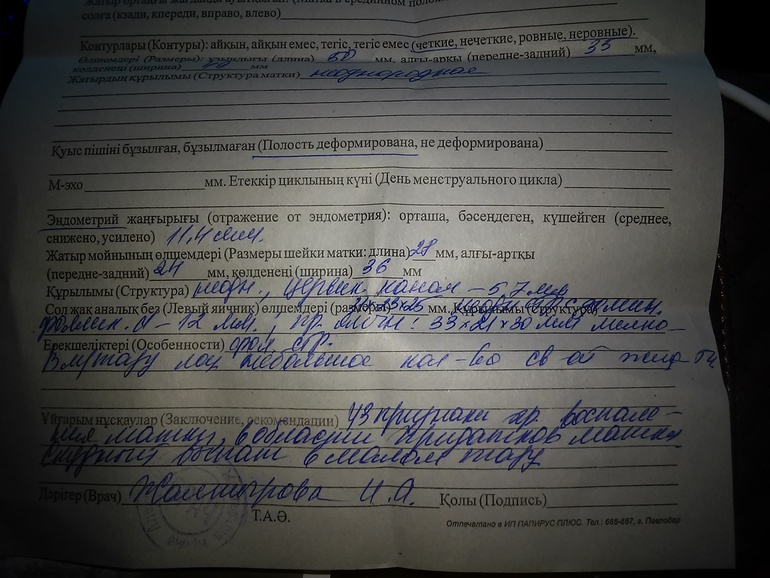 солға (кзади, кпереди, вправо, влево)
Контурлары (Контуры): айқын, айқын емес, тегіс, тегіс емес (четкие, нечеткие, ровные, неровные).
Өлшемдері (Размеры): ұзындығы (длина) 50 мм, алғы-артқы (передне-задний) 35 мм,
көлденеңі (ширина) мм
Жатырдың құрылымы (Структура матки) неоднородная
Қуыс пішіні бұзылған, бұзылмаған (Полость деформирована, не деформирована)
М-эхо мм. Етеккір циклының күні (День менструального цикла)
Эндометрий жаңғырығы (отражение от эндометрия): орташа, бәсеңдеген, күшейген (среднее,
снижено, усилено) 11,4 мм.
Жатыр мойнының өлшемдері (Размеры шейки матки: длина) 28 мм, алғы-артқы
(передне-задний) 24 мм, көлденені (ширина) 36 мм
Құрылымы (Структура) неодн., цервик. канал - 5,7 мм
Сол жақ аналық без (Левый яичник) өлшемдері (размеры) мм, Құрылымы (Структура)
фоллик. d - 12 мм. пр. яичн: 33 х 21 х 30 мм мелко
Ерекшеліктері (Особенности) фол. стр.
В м/тазу лоц небольшое кол-во св-ой жид-ти
Ұйғарым нұсқаулар (Заключение, рекомендации) УЗ признаки хр воспале-
ния матки, в области придатков матки
скудный выпот в малом тазу
Дәрігер (Врач) И.А. Қолы (Подпись)
Т.А.Ә.
Отпечатано в ИП ПАПИРУС ПЛЮС. Тел.: 668-467, г. Павлодар